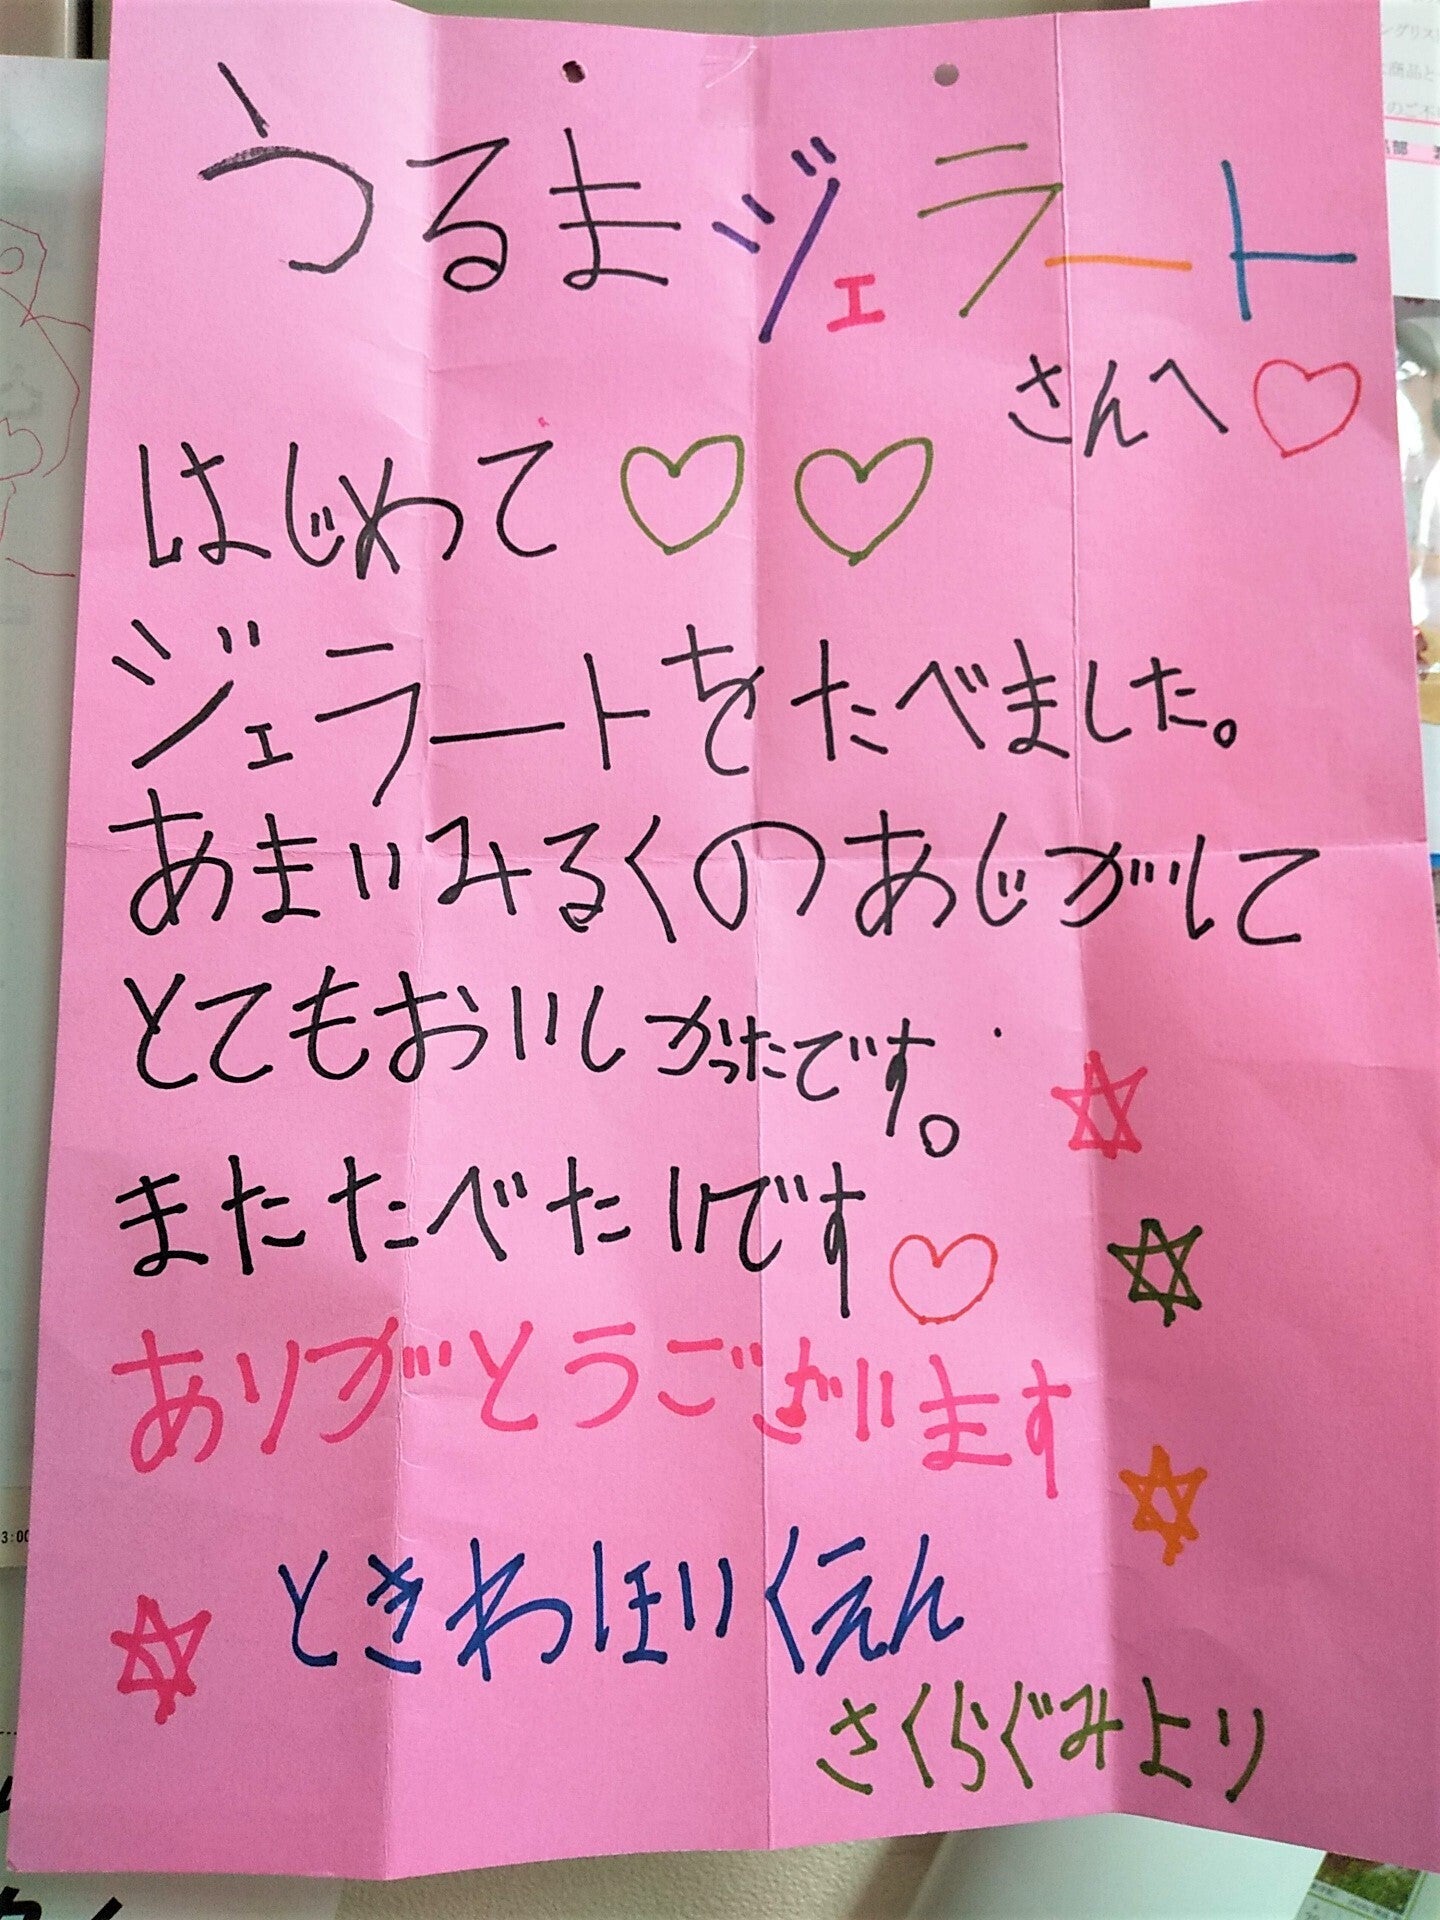 うるまジェラート
さんへ
はじめて
ジェラートをたべました。
あまいみるくのあじがして
とてもおいしかったです。
またたべたいです
ありがとうございます
ときわほいくえん
さくらぐみより
3:00